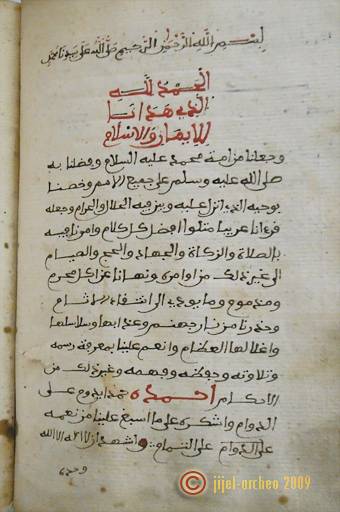 بسم الله الرحمن الرحيم صلى الله على سيدنا محمد
الحمد لله
الذي هدانا
للايمان والاسلام
وجعلنا من امة محمد عليه السلام وفضلنا به
صلى الله عليه وسلم على جميع الامم وخصنا
بوحيه الذي انزل عليه وبين فيه الحلال والحرام وجعله
قرءانا عربيا متلوا افضل كل كلام وامرنا فيه
بالصلاة والزكاة والجهاد والحج والصيام
الى غير ذلك من اوامره ونهانا عن اكل محرم
ومذموم وما يودي الى الاثام
وحذرنا من نار جهنم وعذابها وسلاسلها
واغلالها العظام وانعم علينا بمعرفة رسمه
وتلاوته وحفظه وفهمه وغير ذلك من
الاحكام احمده حمدا يدوم على
الدوام واشكره على ما اسبغ علينا من نعمه
على الدوام على التمام واشهد ان لا اله الا الله
وحده
© jijel-archeo 2009